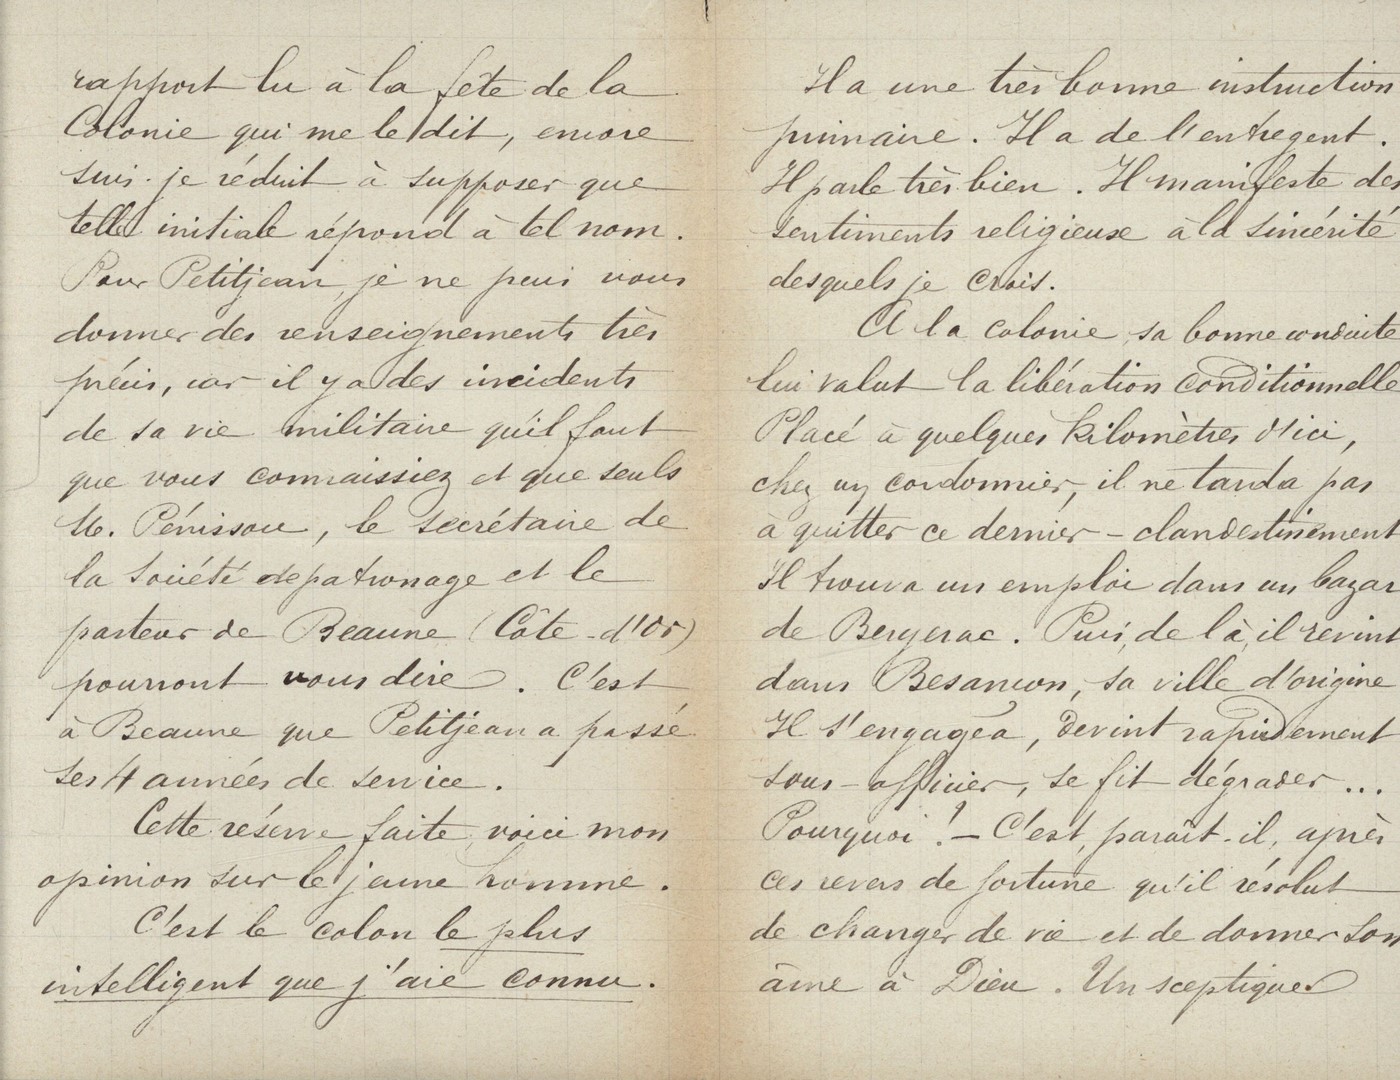 rapport lu à la fête de la
Colonie qui me le dit, encore
suis-je réduit à supposer que
telle initiale répond à tel nom.
Pour Petitjean, je ne puis vous
donner des renseignements très
précis, car il y a des incidents
de sa vie militaire qu'il faut
que vous connaissiez et que seuls
M. Pénissou, le secrétaire de
la Société de patronage et le
pasteur de Beaune (Côte-d'Or)
pourront vous dire. C'est
à Beaune que Petitjean a passé
ses 4 années de service.
Cette réserve faite, voici mon
opinion sur le jeune homme.
C'est le colon le plus
intelligent que j'aie connu.
Il a une très bonne instruction
primaire. Il a de l'entregent.
Il parle très bien. Il manifeste des
sentiments religieuse à la sincérité
desquels je crois.
A la colonie, sa bonne conduite
lui valut la libération conditionnelle
Placé à quelques kilomètres d'ici,
chez un cordonnier, il ne tarda pas
à quitter ce dernier - clandestinement
Il trouva un emploi dans un bazar
de Bergerac. Puis, de là, il revint
dans Besançon, sa ville d'origine
Il s'engagea, devint rapidement
sous-officier, se fit dégrader ...
Pourquoi ? - C'est, paraît-il, après
ces revers de fortune qu'il résolut
de changer de vie et de donner son
âme à Dieu. Un sceptique